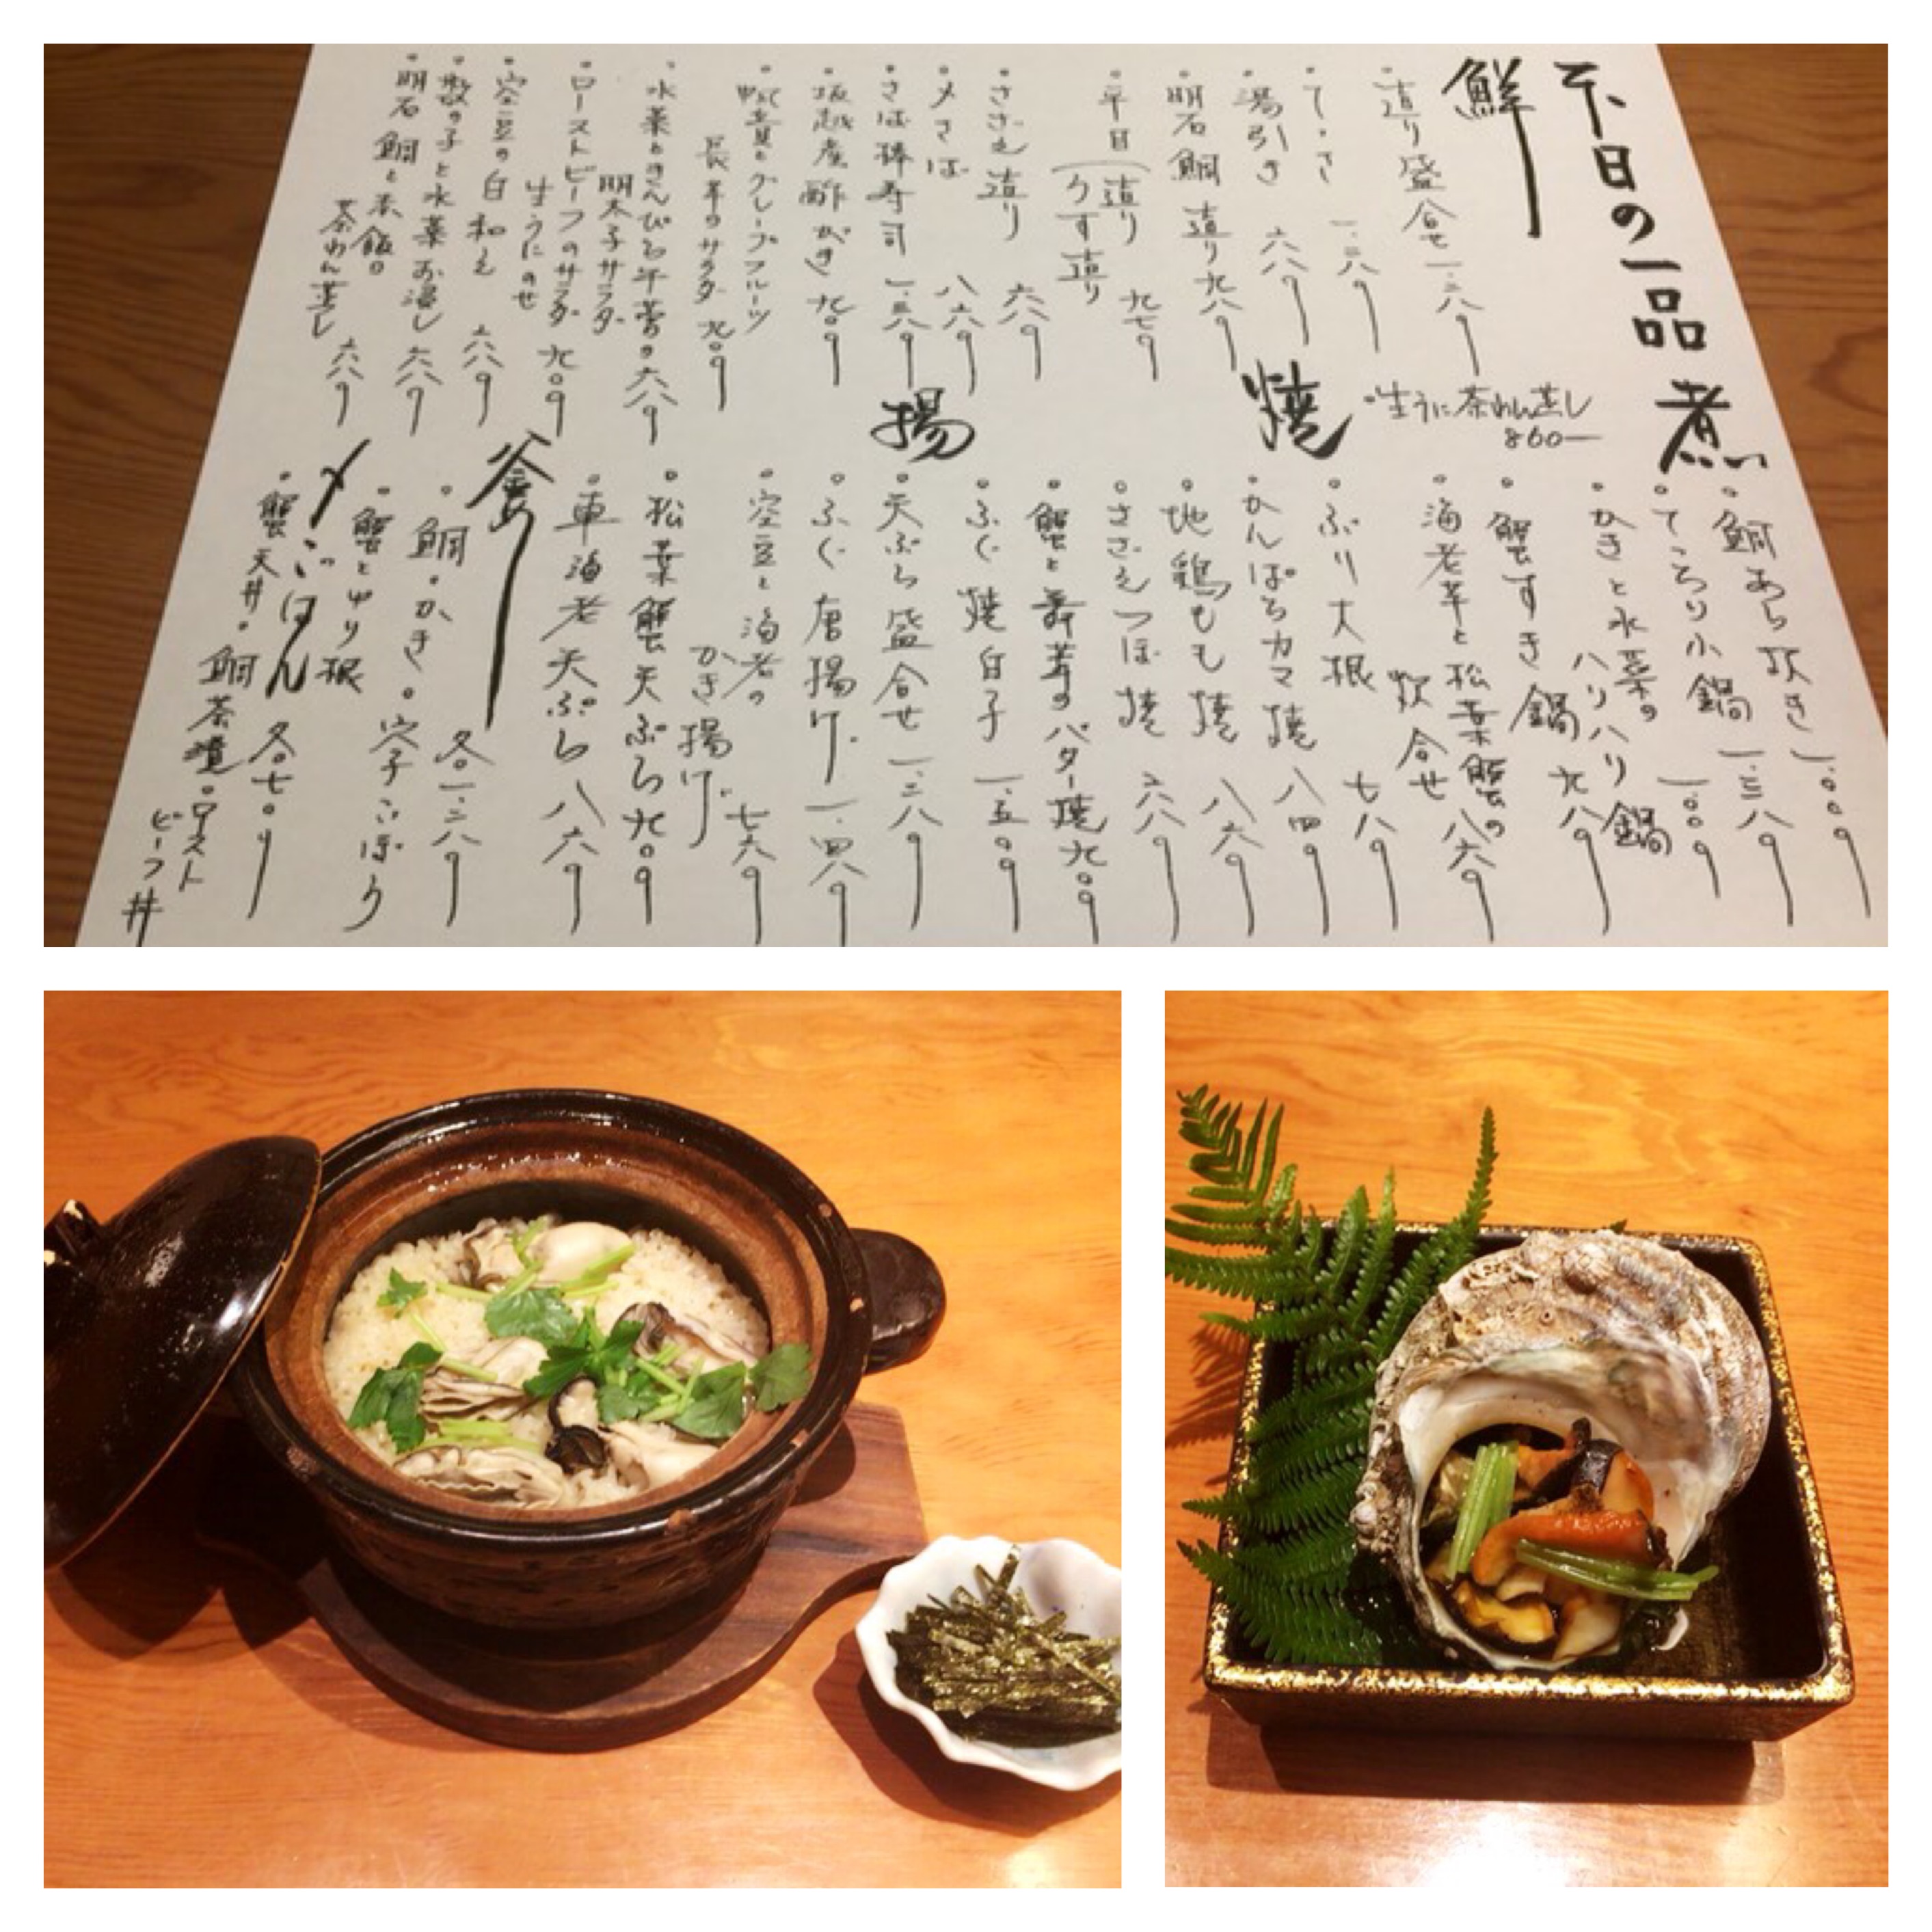 本日の一品
鮮
造り盛合せ 一、二八〇
てっさ 一、二八〇
湯引き 六八〇
明石鯛造り 九八〇
平目(造り うす造り 九七〇
さざえ造り 六八〇
〆さば 八六〇
さば棒寿司 一、三八〇
坂越産酢がき 九〇〇
帆立貝とグレープフルーツ
長芋のサラダ 九〇〇
水菜ときんぴら牛蒡の
明太子サラダ 六八〇
ローストビーフのサラダ
生うにのせ 九〇〇
空豆の白和え 六八〇
数の子と水菜お浸し 六八〇
明石鯛と
茶わん蒸し 六八〇
煮
生うに茶わん蒸し
860ー
鯛あら炊き 一、〇〇〇
てっちり小鍋 一、三八〇
かきと水菜の
ハリハリ鍋 一、〇〇〇
蟹すき鍋 九八〇
海老芋と松葉蟹の
炊合せ 八六〇
焼
ぶり大根 七八〇
かんぱちカマ焼 八四〇
地鶏もも焼 八六〇
さざえつぼ焼 六八〇
蟹と舞茸のバター焼 九〇〇
ふぐ焼白子 一、五〇〇
揚
天ぷら盛合せ 一、二八〇
ふぐ唐揚げ 一、四八〇
空豆と海老の
かき揚げ 七六〇
松葉蟹天ぷら 九〇〇
車海老天ぷら 八六〇
釜
鯛・かき・穴子ごぼう
蟹とゆり根 各一、二八〇
〆ごはん
蟹天丼・鯛茶漬・ローストビーフ丼
各七〇〇